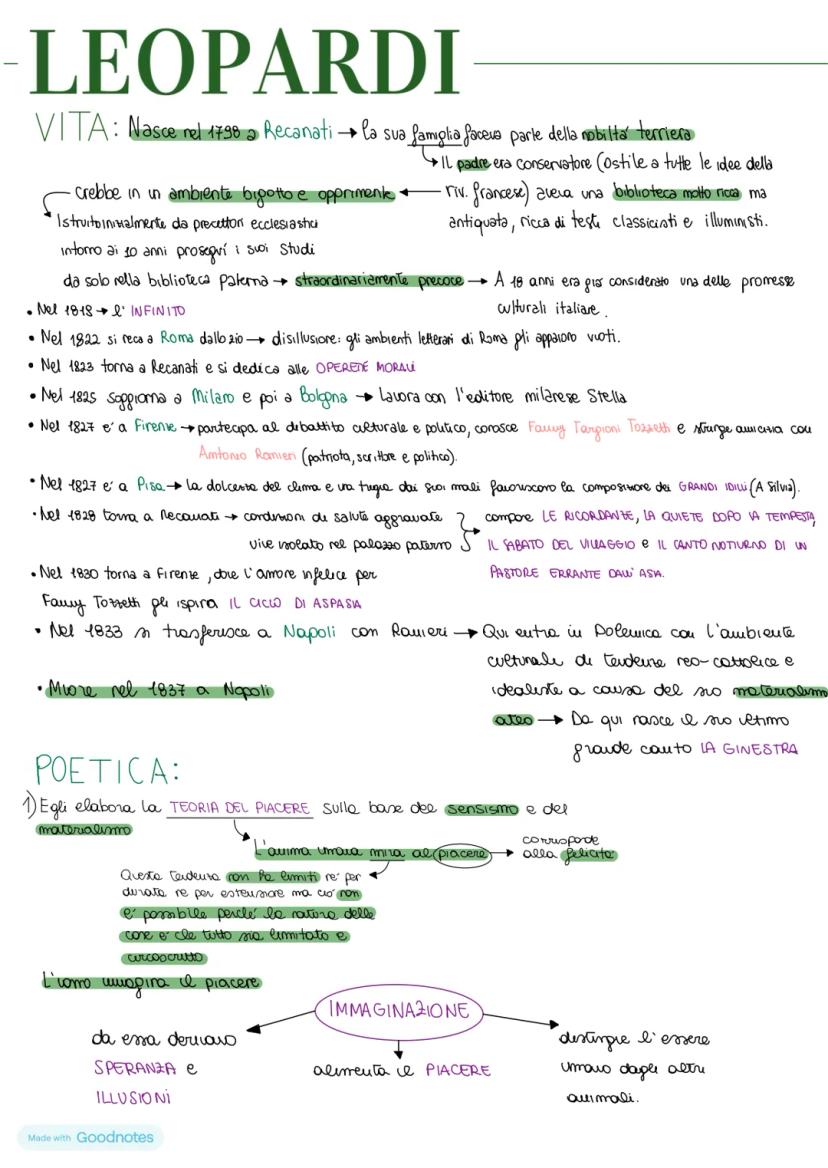 LEOPARDI
VITA: Nasce nel 1798 a Recanati → la sua famiglia faceva parte della nobiltà terriera
Il padre era conservatore (ostile a tutte le idee della
riv. francese) aveva una biblioteca molto ricca ma
antiquata, ricca di testi classicisti e illuministi.
Crebbe in un ambiente bigotto e opprimente
Istruito inizialmente da precettori ecclesiastici
intorno ai 10 anni proseguì i suoi studi
da solo nella biblioteca paterna → straordinariamente precoce → A 18 anni era già considerato una delle promesse
culturali italiane.
• Nel 1818 → l'INFINITO
• Nel 1822 si reca a Roma dallo zio → disillusione: gli ambienti letterari di Roma gli appaiono vuoti.
• Nel 1823 torna a Recanati e si dedica alle OPERETTE MORALI
• Nel 1825 soggiorna a Milano e poi a Bologna → Lavora con l'editore milanese Stella
• Nel 1827 e' a Firenze → partecipa al dibattito culturale e politico, conosce Fanny Targioni Tozzetti e stringe amicizia con
Antonio Ranieri (patriota, scrittore e politico).
• Nel 1827 e' a Pisa → la dolcezza del clima e una tregua dai suoi mali favoriscono la composizione dei GRANDI IDILLI (A Silvia).
• Nel 1828 torna a Recanati → condizioni di salute aggravate
vive isolato nel palazzo paterno
compone LE RICORDANZE, LA QUIETE DOPO LA TEMPESTA,
IL SABATO DEL VILLAGGIO e IL CANTO NOTTURNO DI UN
PASTORE ERRANTE DALL'ASIA.
• Nel 1830 torna a Firenze, dove l'amore infelice per
Fanny Tozzetti gli ispira IL CICLO DI ASPASIA
• Nel 1833 si trasferisce a Napoli con Ranieri → Qui entra in Polemica con l'ambiente
culturale di tendenze neo-cattolice e
idealiste a causa del suo materialismo
ateo → Da qui nasce il suo ultimo
grande canto LA GINESTRA
• Muore nel 1837 a Napoli
POETICA:
1) Egli elabora la TEORIA DEL PIACERE sulla base del sensismo e del
materialismo
L'anima umana mira al piacere → corrisponde
alla felicità
Questa tendenza non ha limiti ne' per
durata ne per estensione ma cio' non
e' possibile perche' la natura delle
cose e' che tutto sia limitato e
circoscritto
L'uomo immagina il piacere
IMMAGINAZIONE
da essa derivano
SPERANZA e
ILLUSIONI
alimenta il PIACERE
distingue l'essere
umano dagli altri
animali.
Made with Goodnotes